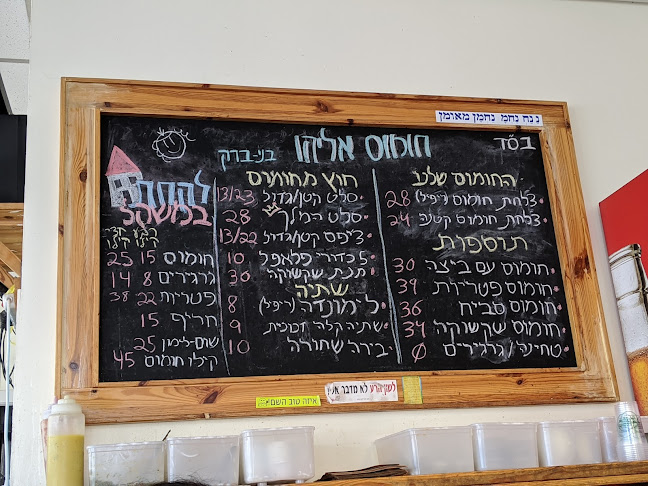 נ נח נחמ נחמן מאומן
בס"ד
חומוס אליהו בני-ברק
החומוס שלנו
צלחת חומוס (ריפיל) 28
צלחת חומוס קטנה 24
תוספות
חומוס עם ביצה 30
חומוס פטריות 39
חומוס סביח 36
חומוס שקשוקה 34
טחינה/גרגירים 0
חוץ מחומוס
סלט קטן/גדול 13/23
סלט המלך 28
צ'יפס קטן/גדול 13/22
5 כדורי פלאפל 10
תבת שקשוקה 30
שתיה
לימונדה (ריפיל) 8
שתיה קלה זכוכית 9
בירה שחורה 10
לקחת
במשקל
רבע חצי
קילו קילו
חומוס 15 25
גרגירים 8 14
פטריות 22 38
חריף 15
שום-לימון 25
קילו חומוס 45
לשון הרע לא מדבר אלי
איזה טוב השם!